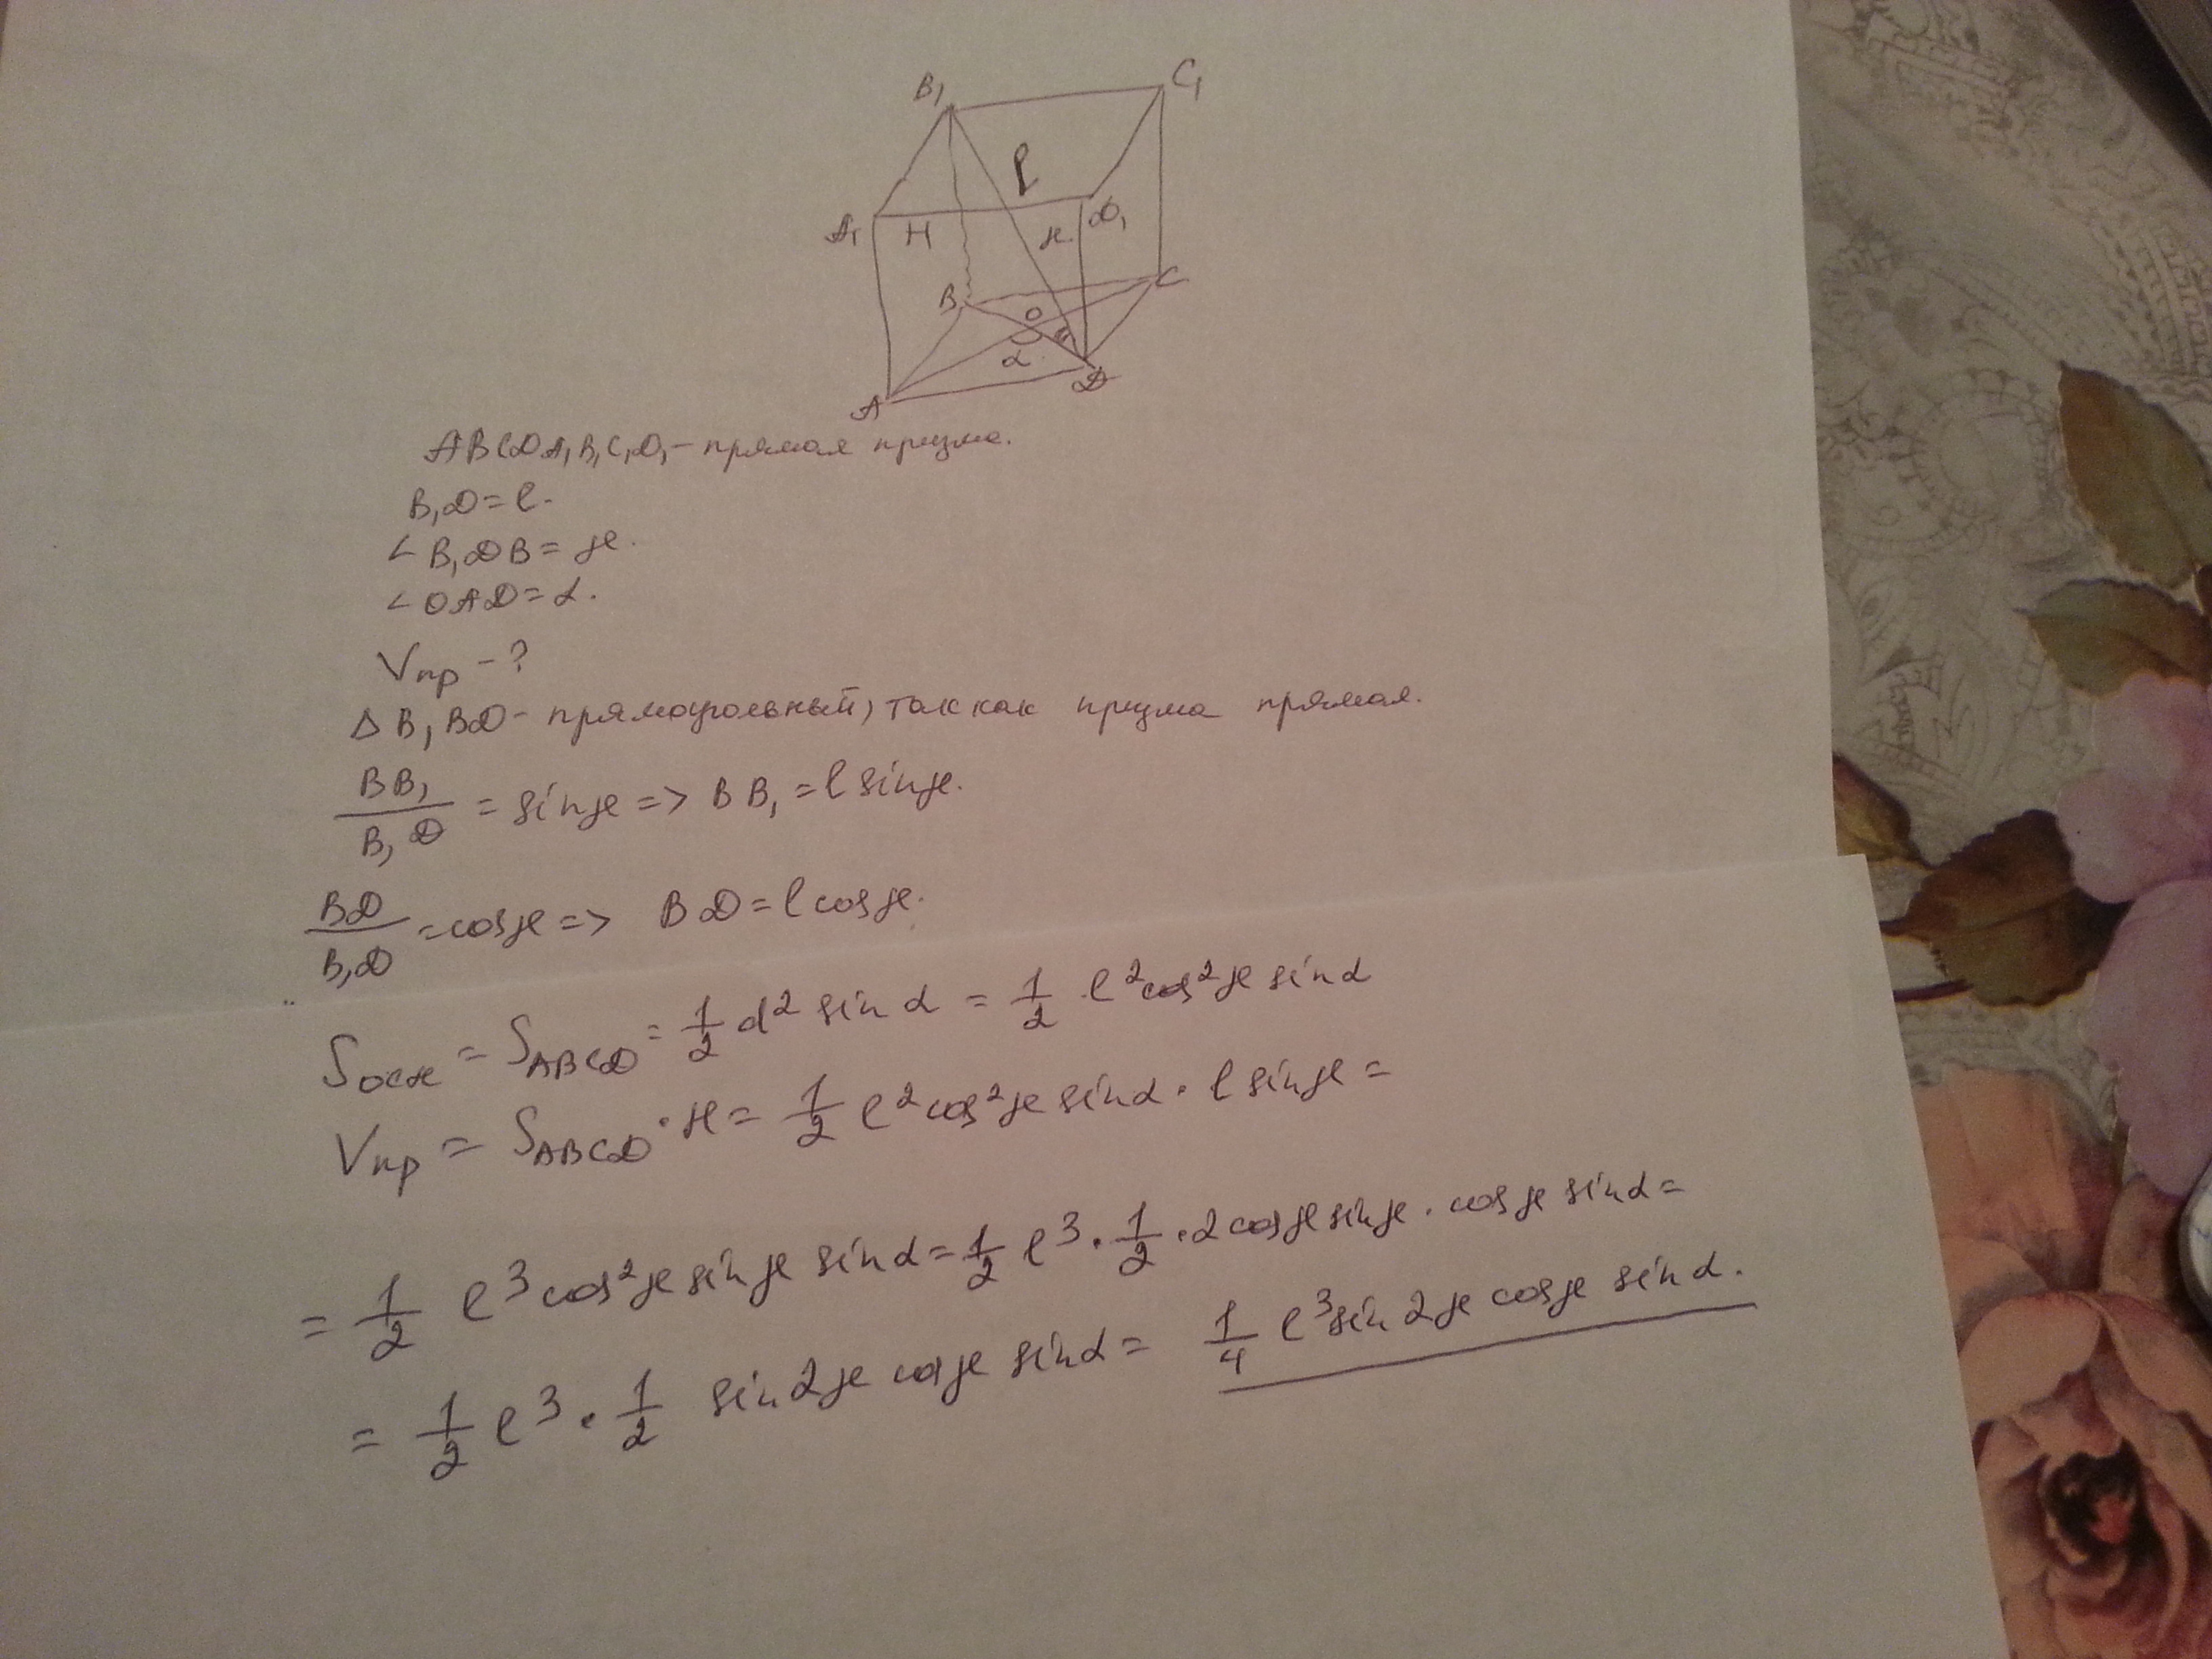 B₁ C₁
l
A₁ H н D₁
B C
O
α
A D
ABCDA₁B₁C₁D₁ – прямая призма.
B₁D = l.
∠ B₁DB = н.
∠ OAD = α.
Vпр – ?
Δ B₁BD – прямоугольный, так как призма прямая.
BB₁/B₁D = sin н => BB₁ = l sin н.
BD/B₁D = cos н => BD = l cos н.
Sосн = SABCD = 1/2 d² sin α = 1/2 · l² cos² н sin α
Vпр = SABCD · н = 1/2 l² cos² н sin α · l sin н =
= 1/2 l³ cos² н sin н sin α = 1/2 l³ · 1/2 · 2 cos н sin н · cos н sin α =
= 1/2 l³ · 1/2 sin 2н cos н sin α = 1/4 l³ sin 2н cos н sin α.